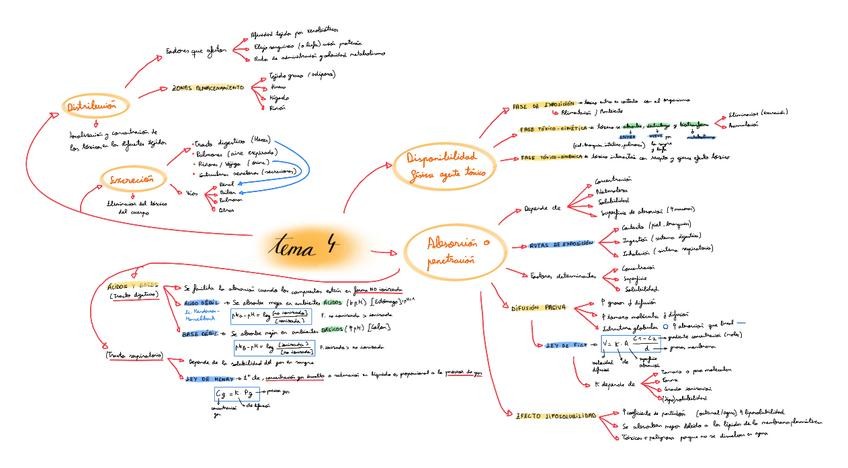 tema 4
Distribución
localización y concentración de
los tóxicos en los diferentes tejidos
Factores que afectan
Afinidad tejido por xenobiótico
Flujo sanguíneo (o linfa)
Ruta de administración y velocidad metabolismo
ZONAS ALMACENAMIENTO
Tejido graso (adiposo)
Hueso
Hígado
Riñón
Excreción
Eliminación del tóxico
del cuerpo
Tracto digestivo (heces)
Pulmones (aire expirado)
Riñones / Vejiga (orina)
(secreciones)
Vías
Renal
Biliar
Pulmonar
Otras
Disponibilidad
física agente tóxico
FASE DE EXPOSICIÓN → tóxico entra en contacto con el organismo
FASE TÓXICO-CINÉTICA → tóxico se absorbe, distribuye y
Eliminación
Acumulación
FASE TÓXICO-DINÁMICA → tóxico interactúa con receptor y genera efecto tóxico
Absorción o
penetración
Depende de
Concentración
Naturaleza
Solubilidad
Superficie de absorción
RUTAS DE EXPOSICIÓN
Contacto (piel, branquias)
Ingestión (sistema digestivo)
Inhalación (sistema respiratorio)
Factores determinantes
Concentración
Superficie
Solubilidad
DIFUSIÓN PASIVA
↑ grosor ↓ difusión
↑ tamaño molécula ↓ difusión
Estructura globular ↑ absorción que lineal
LEY DE FICK
V = K · A (C1 - C2) / d
gradiente concentración
grosor membrana
velocidad
difusión
superficie
absorción
K depende de
Tamaño o peso molecular
Forma
Grado ionización
(lipo)solubilidad
EFECTO LIPOSOLUBILIDAD
↑ coeficiente de partición (octanol/agua) ↑ liposolubilidad
Se absorben mejor debido a los lípidos de la membrana plasmática
Tóxicos + peligrosos porque no se disuelven en agua
ÁCIDOS Y BASES
(Tracto digestivo)
Se facilita la absorción cuando los compuestos están en forma NO ionizada
ÁCIDO DÉBIL → Se absorbe mejor en ambientes ÁCIDOS (↓pH) [Estómago]
pKa - pH = log (no ionizada) / (ionizada)
F. no ionizada > ionizada
BASE DÉBIL → Se absorbe mejor en ambientes BÁSICOS (↑pH) [Colon]
pKa - pH = log (ionizada) / (no ionizada)
F. ionizada > no ionizada
(Tracto respiratorio)
Depende de la solubilidad del gas en sangre
LEY DE HENRY → concentración gas disuelto en líquido es proporcional a la presión de gas
Cg = K Pg → presión gas
concentración
gas